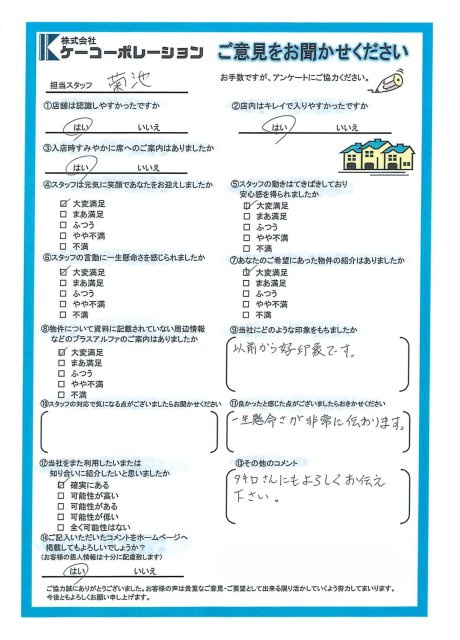 株式会社
ケーコーポレーション ご意見をお聞かせください
担当スタッフ 菊池
お手数ですが、アンケートにご協力ください。
①店舗は認識しやすかったですか
はい いいえ
②店内はキレイで入りやすかったですか
はい いいえ
③入店時すみやかに席へのご案内はありましたか
はい いいえ
④スタッフは元気に笑顔であなたをお迎えしましたか
☑ 大変満足
□ まあ満足
□ ふつう
□ やや不満
□ 不満
⑤スタッフの動きはてきぱきしており
安心感を得られましたか
☑ 大変満足
□ まあ満足
□ ふつう
□ やや不満
□ 不満
⑥スタッフの言動に一生懸命さを感じられましたか
☑ 大変満足
□ まあ満足
□ ふつう
□ やや不満
□ 不満
⑦あなたのご希望にあった物件の紹介はありましたか
☑ 大変満足
□ まあ満足
□ ふつう
□ やや不満
□ 不満
⑧物件について資料に記載されていない周辺情報
などのプラスアルファのご案内はありましたか
☑ 大変満足
□ まあ満足
□ ふつう
□ やや不満
□ 不満
⑨当社にどのような印象をもちましたか
以前から好印象です。
⑩スタッフの対応で気になる点がございましたらお聞かせください
⑪良かったと感じた点がございましたらおきかせください
一生懸命さが非常に伝わります。
⑫当社をまた利用したいまたは
知り合いに紹介したいと思いましたか
☑ 確実にある
□ 可能性が高い
□ 可能性がある
□ 可能性が低い
□ 全く可能性はない
⑬その他のコメント
タキロさんにもよろしくお伝え
下さい。
⑭ご記入いただいたコメントをホームページへ
掲載してもよろしいでしょうか？
（お客様の個人情報は十分に配慮致します）
はい いいえ
ご協力誠にありがとうございました。お客様の声は貴重なご意見・ご要望として出来る限り活かしていくよう努力してまいります。
今後ともよろしくお願い申し上げます。